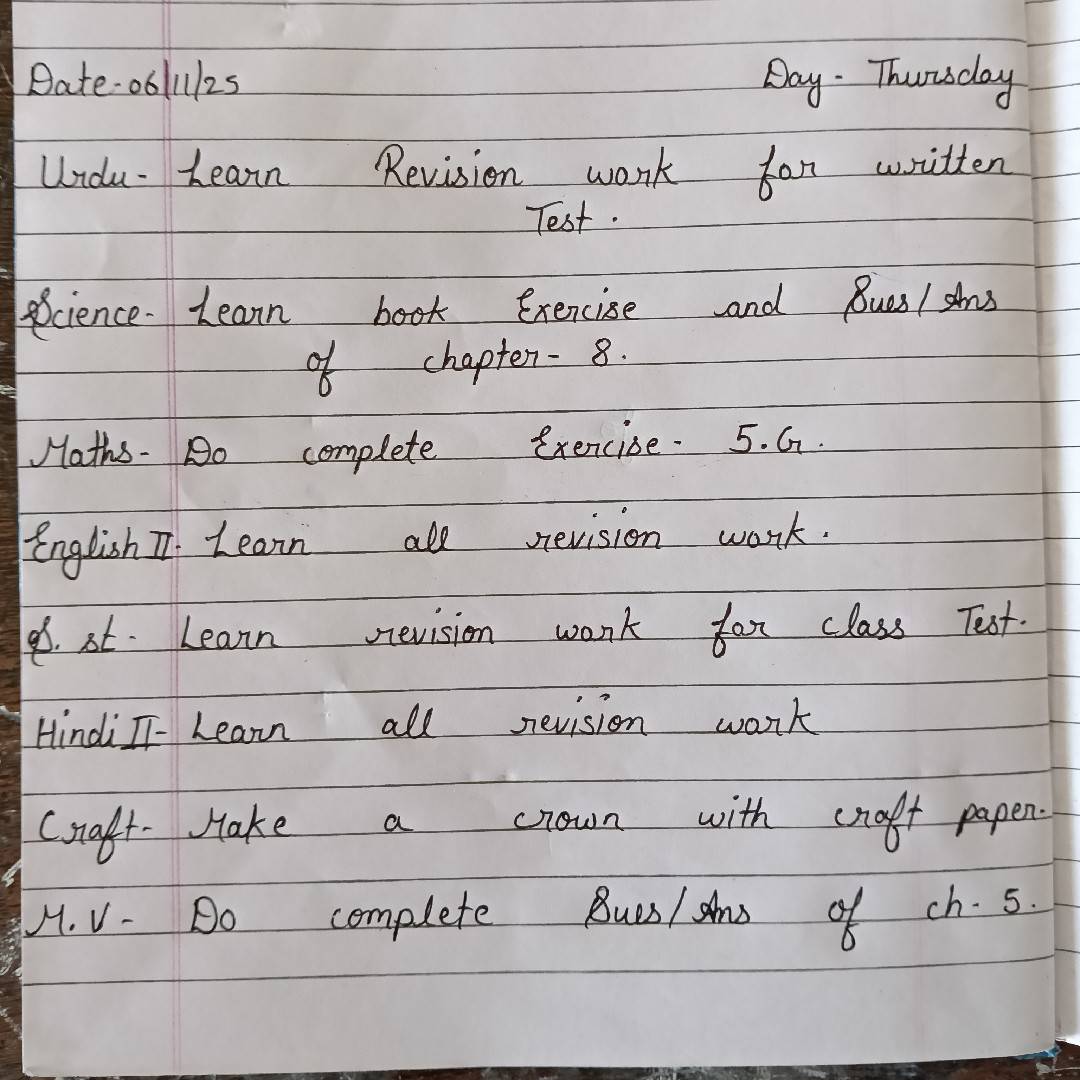 Date-06/11/25 Day- Thursday
Urdu- Learn Revision work for written
Test.
Science- Learn book Exercise and Ques/Ans
of chapter- 8.
Maths- Do complete Exercise- 5.G.
English II- Learn all revision work.
S. st- Learn revision work for class Test.
Hindi II- Learn all revision work
Craft- Make a crown with craft paper.
M.V- Do complete Ques/Ans of ch- 5.